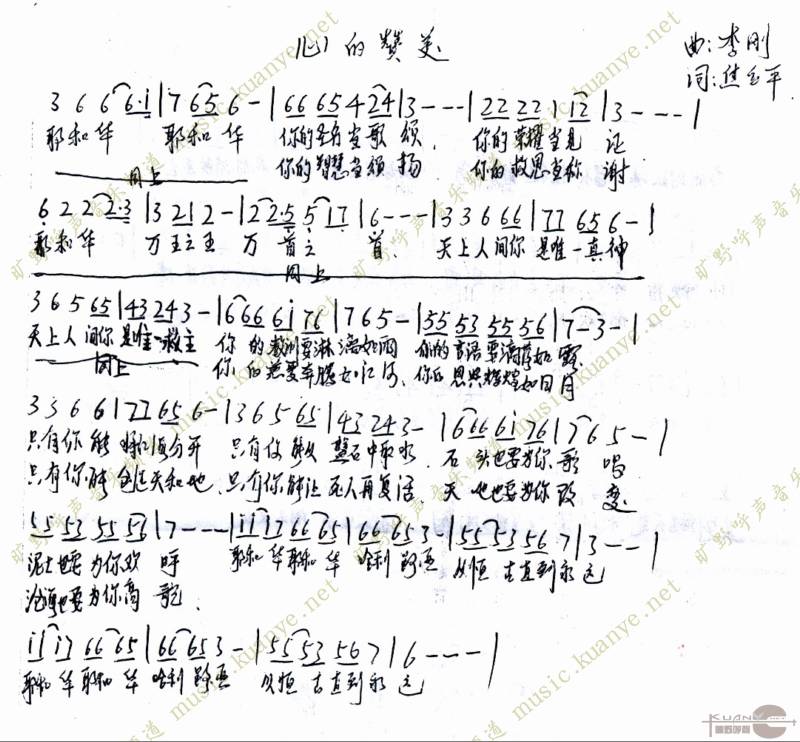 心的赞美
曲:李刚
词:焦玉平
3 6 6 6·i | 7 65 6 - | 66 65 4 24 | 3 - - - | 22 22 1 12 | 3 - - - |
耶和华 耶和华 你的圣名当歌颂, 你的荣耀当见证
同上 你的智慧当颂扬 你的救恩当称谢
6 2 2 2·3 | 3 21 2 - | 2 2·5 5 17 | 6 - - - | 3 3 6 66 | 77 65 6 - |
耶和华 万王之王 万首之首. 天上人间你是唯一真神
同上
3 6 5 65 | 43 24 3 - | 6 666 6i 76 | 7 6 5 - | 55 53 55 56 | 7 - 3 - |
天上人间你是唯一救主 你的教训要淋漓如雨 你的言语要滴落如露
同上 你的慈爱奔腾如江河, 你的恩典辉煌如日月
3 3 6 6 | 77 65 6 - | 3 6 5 65 | 43 24 3 - | 6 666 6i 76 | 7 6 5 - |
只有你能 分开 只有你能从磐石中取水, 石头也要为你歌唱
只有你能创造天和地, 只有你能让死人再复活, 天地也要为你改变
55 53 55 56 | 7 - - - | ii i7 66 65 | 66 65 3 - | 55 53 56 7 | 3 - - - |
泥土也要为你欢呼 耶和华耶和华 哈利路亚 从亘古直到永远
沧海也要为你高歌.
ii i7 66 65 | 66 65 3 - | 55 53 56 7 | 6 - - - |
耶和华耶和华 哈利路亚 从亘古直到永远
旷野呼声音乐频道 music.kuanye.net
KUANYE.net
旷野呼声